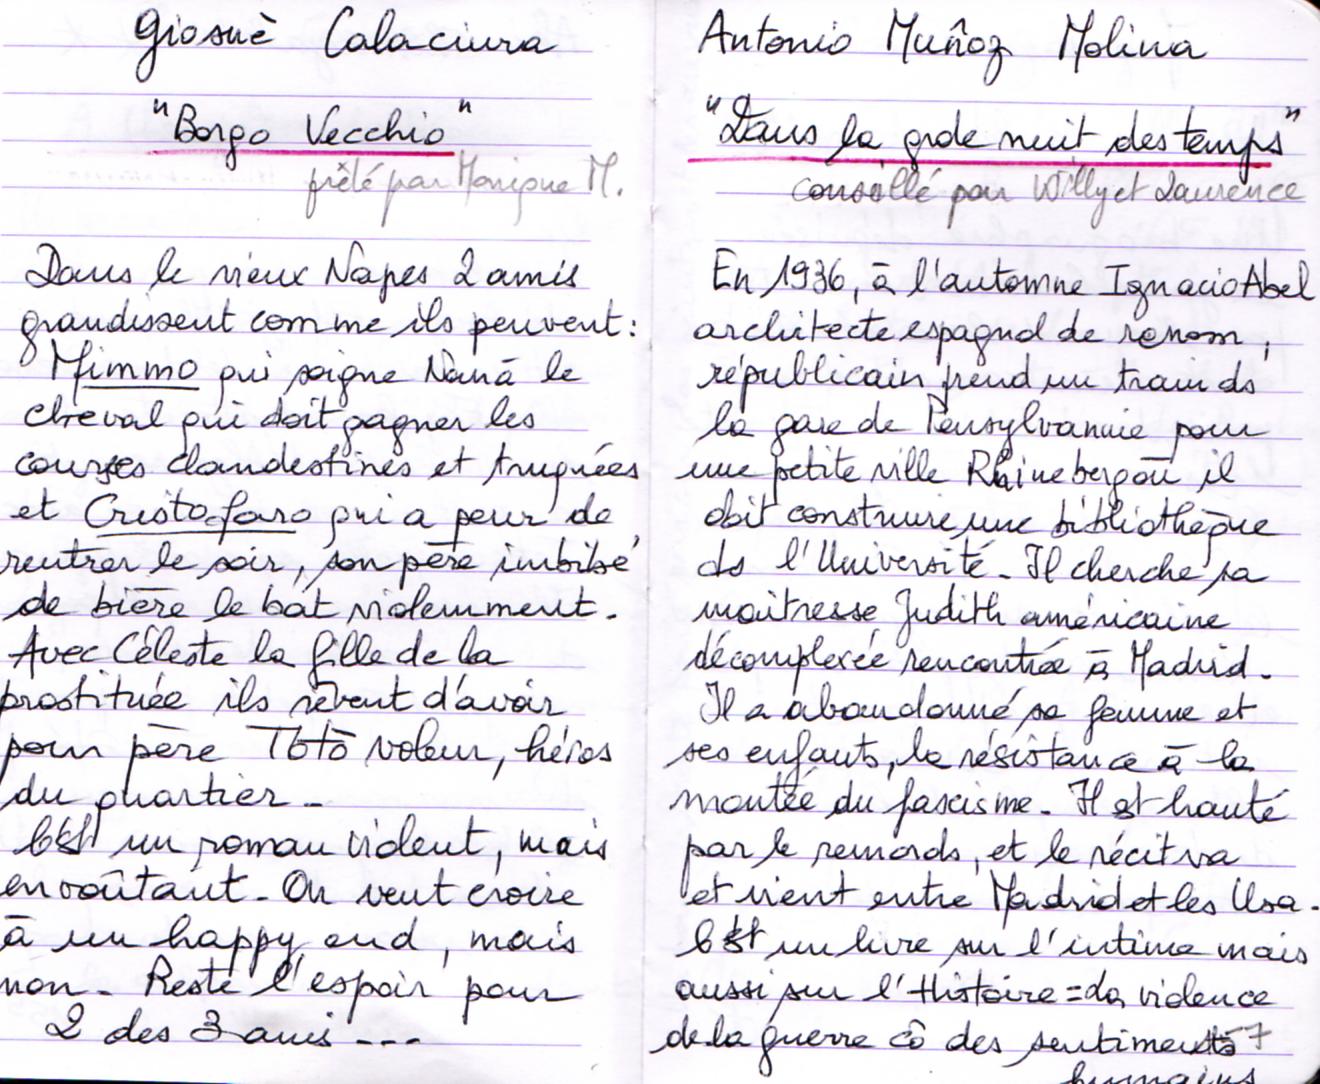 Giosuè Calaciura
"Borgo Vecchio"
prêté par Monique M.
Dans le vieux Napes 2 amis
grandissent comme ils peuvent :
Mimmo qui soigne Nanà le
cheval qui doit gagner les
courses clandestines et truquées
et Cristofaro qui a peur de
rentrer le soir, son père imbibé
de bière le bat violemment.
Avec Céleste la fille de la
prostituée ils rêvent d'avoir
pour père Totò voleur, héros
du quartier.
C'est un roman violent, mais
envoûtant. On veut croire
à un happy end, mais
non. Reste l'espoir pour
2 des 3 amis ...
Antonio Muñoz Molina
"Dans la grde nuit des temps"
conseillé par Willy et Laurence
En 1936, à l'automne Ignacio Abel
architecte espagnol de renom,
républicain prend un train ds
la gare de Pensylvannie pour
une petite ville Rhineberg où il
doit construire une bibliothèque
ds l'Université. Il cherche sa
maitresse Judith américaine
décomplexée rencontrée à Madrid.
Il a abandonné sa femme et
ses enfants, la résistance à la
montée du fascisme. Il est hanté
par le remords, et le récit va
et vient entre Madrid et les Usa.
C'est un livre sur l'intime mais
aussi sur l'Histoire = la violence
de la guerre cô des sentiments
humains